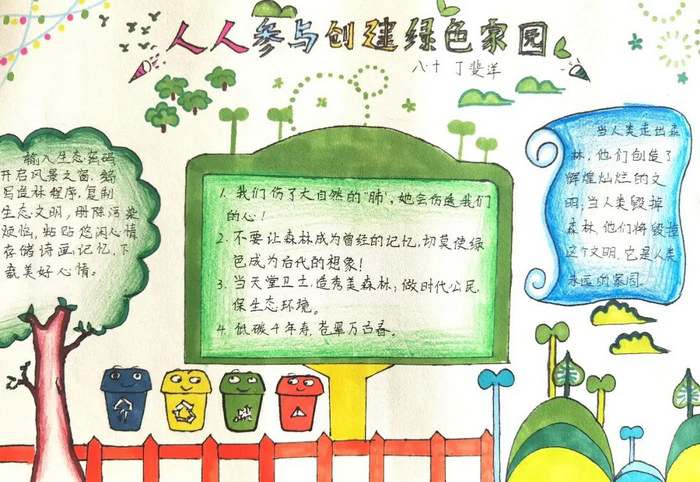 人人参与创建绿色家园
八十 丁斐洋
输入生态密码
开启风景之窗,编
写造林程序,复制
生态文明,删除污染
烦恼,粘贴悠闲心情
存储诗画记忆,下
载美好心情。
1. 我们伤了大自然的"肺",她会伤透我们
的心!
2. 不要让森林成为曾经的记忆,切莫使绿
色成为后代的想象!
3. 当天堂卫士,造秀美森林;做时代公民,
保生态环境。
4. 低碳千年寿,苍翠万古春。
当人类走出森
林,他们创造了
辉煌灿烂的文
明,当人类毁掉
森林,他们将毁掉
这个文明,它是人类
永远的家园.